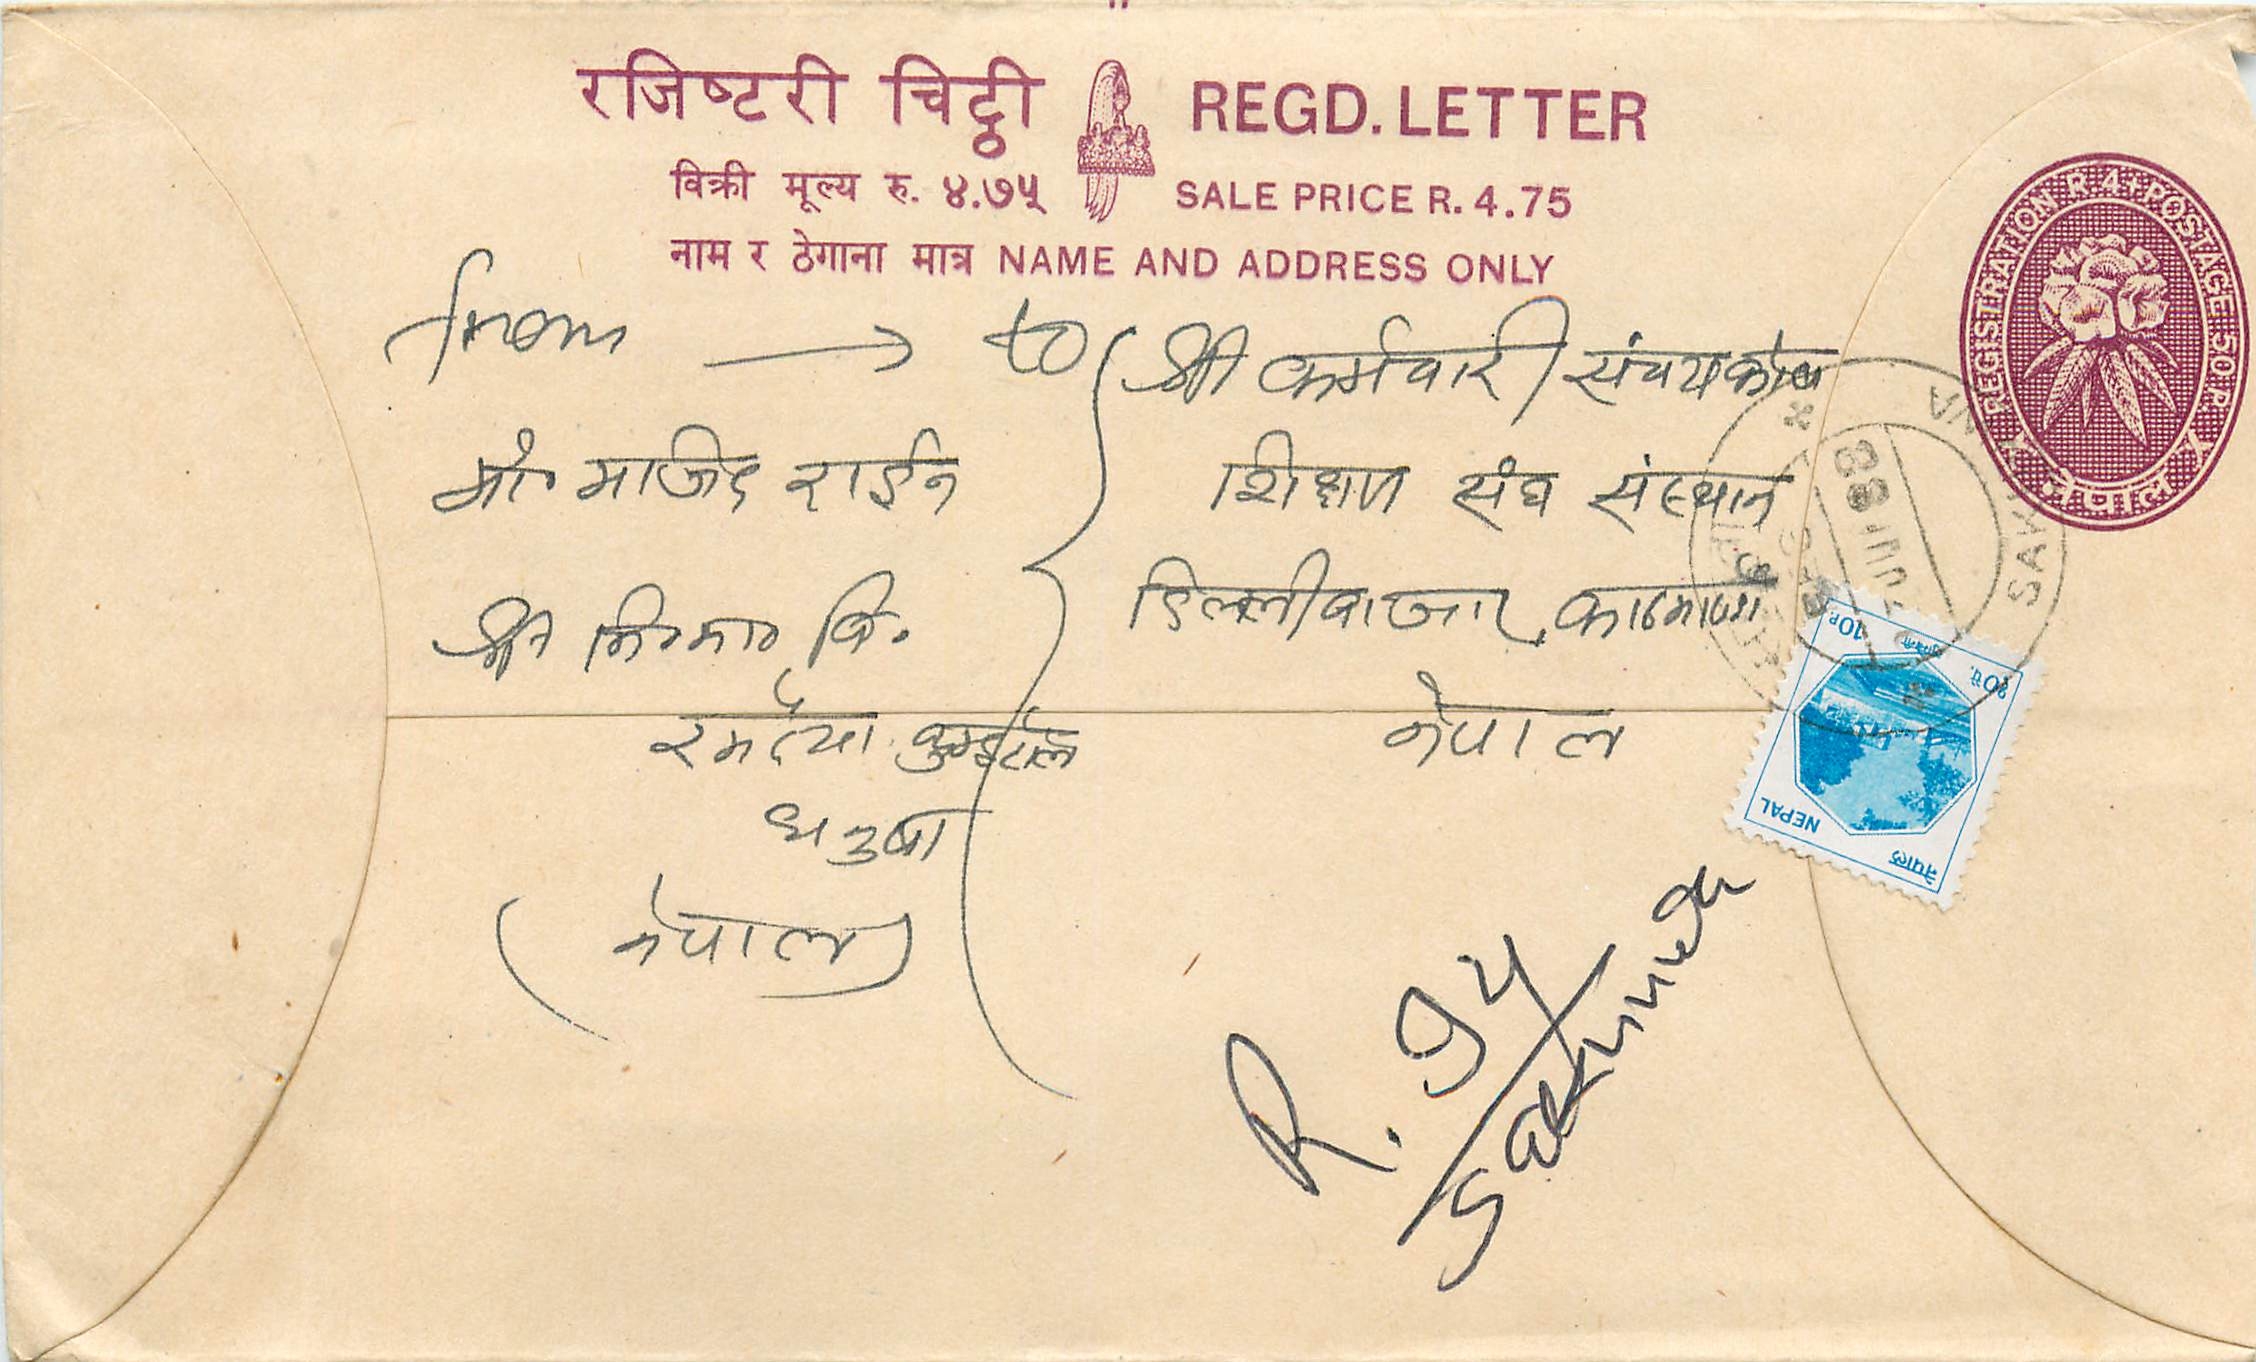 रजिष्टरी चिट्ठी REGD. LETTER
विक्री मूल्य रु. ४.७५ SALE PRICE R. 4.75
नाम र ठेगाना मात्र NAME AND ADDRESS ONLY
REGISTRATION R. 4+POSTAGE 50 P.
नेपाल
from → to
श्री कर्मचारी संचयकोष
शिक्षण संघ संस्थान
डिल्लीबाजार, काठमाण्डौ
नेपाल
मो० माजिद राईन
श्री नि०मा० वि०
धनुषा
(नेपाल)
SAKHUWA
नेपाल
NEPAL
१० पै.
10 P.
R. 94
Sakhuwa